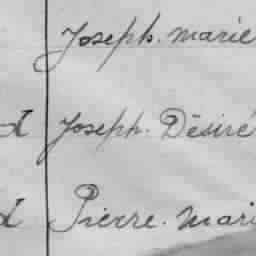 Joseph. Marie
d Joseph. Désiré
d Pierre. Mari